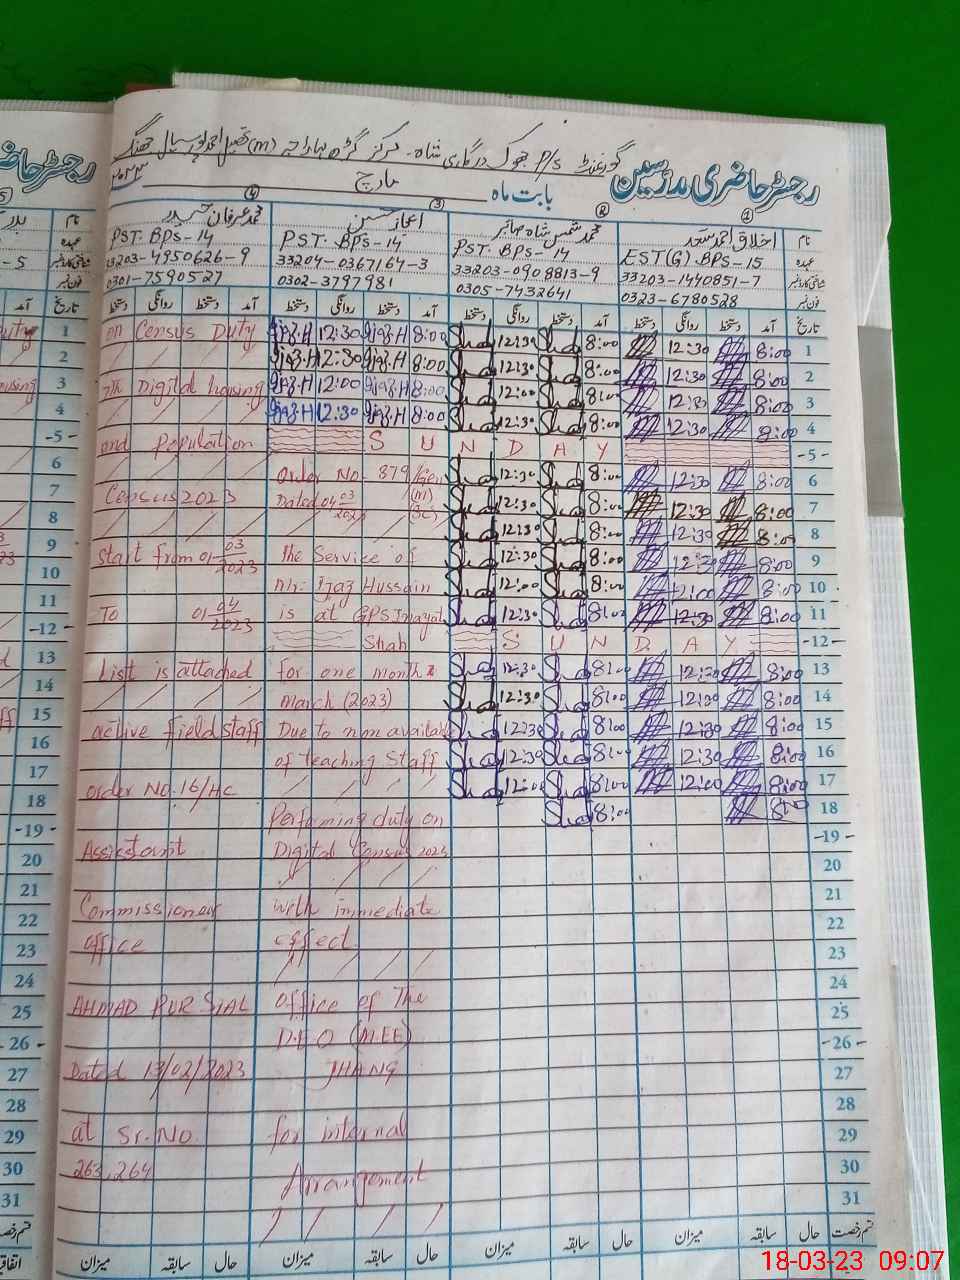 گورنمنٹ P/S جھوک درگاہی شاہ۔ مرکز گڑھ مہاراجہ (m) تحصیل احمد پور سیال جھنگ
رجسٹر حاضری مدرسین
بابت ماہ مارچ
① ② ③ ④
نام اخلاق احمد سعد محمد شمس شاہ صابر اعجاز حسین محمد عرفان حیدر
عہدہ EST(G).BPS-15 PST: BPS-14 PST: BPS-14 PST: BPS-14
33203-1440851-7 33203-0908813-9 33204-0367164-3 33203-4950626-9
فون نمبر 0323-6780528 0305-7432641 0302-3797981 0301-7590527
تاریخ آمد دستخط روانگی دستخط آمد دستخط روانگی دستخط آمد دستخط روانگی دستخط آمد دستخط روانگی دستخط
1 8:00 12:30 8:00 12:30 8:00 Ijaz.H 12:30 Ijaz.H on Census Duty
2 8:00 12:30 8:00 12:30 8:00 Ijaz.H 12:30 Ijaz.H
3 8:00 12:30 8:00 12:00 8:00 Ijaz.H 12:00 Ijaz.H 7th Digital housing
4 8:00 12:30 8:00 12:30 8:00 Ijaz.H 12:30 Ijaz.H
-5- S U N D A Y and Population
6 8:00 12:30 8:00 12:30 Order No. 879/Gen
7 8:00 12:30 8:00 12:30 Dated 04 03 2023 (m) Census 2023
8 8:00 12:30 8:00 12:30
9 8:00 12:30 8:00 12:30 The Service of Start from 01 03 2023
10 8:00 12:00 8:00 12:00 Mr. Ijaz Hussain
11 8:00 12:30 8:00 12:30 is at GPS Inayat To 01 04 2023
-12- S U N D A Y Shah
13 8:00 12:30 8:00 12:30 for one month List is attached
14 8:00 12:30 8:00 12:30 March (2023)
15 8:00 12:30 8:00 12:30 Due to non available active field staff
16 8:00 12:30 8:00 12:30 of teaching Staff
17 8:00 12:00 8:00 12:00 order No. 16/HC
18 8:00 8:00 Performing duty on
-19- Digital Census 2023 Assistant
20
21 with immediate Commissioner
22 effect office
23
24 office of The AHMAD PUR SIAL
25 D.E.O (M.EE)
-26- JHANG Dated 13/02/2023
27
28 for internal at Sr.No.
29 263, 264
30 Arrangement
31
حال سابقہ میزان حال سابقہ میزان حال سابقہ میزان حال سابقہ میزان
18-03-23 09:07